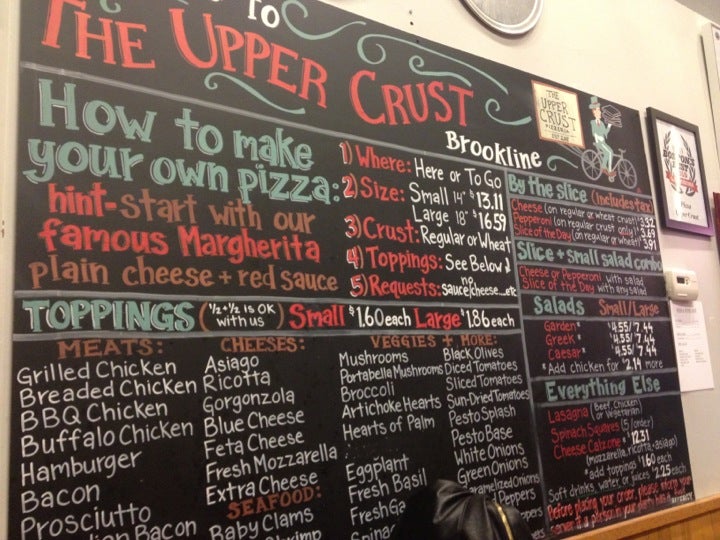 TO
THE UPPER CRUST
Brookline
THE
UPPER
CRUST
PIZZERIA
How to make
your own pizza:
hint-start with our
famous Margherita
plain cheese + red sauce
1) Where: Here or To Go
2) Size: Small 14" $13.11
Large 18" $16.59
3) Crust: Regular or Wheat
4) Toppings: See Below
5) Requests: no sauce, cheese...etc
TOPPINGS (1/2 + 1/2 is OK with us) Small $1.60 each Large $1.86 each
MEATS:
Grilled Chicken
Breaded Chicken
BBQ Chicken
Buffalo Chicken
Hamburger
Bacon
Prosciutto
Bacon
CHEESES:
Asiago
Ricotta
Gorgonzola
Blue Cheese
Feta Cheese
Fresh Mozzarella
Extra Cheese
SEAFOOD:
Baby Clams
VEGGIES + MORE:
Mushrooms
Portabella Mushrooms
Broccoli
Artichoke Hearts
Hearts of Palm
Eggplant
Fresh Basil
Fresh Ga
Spinac
Black Olives
Diced Tomatoes
Sliced Tomatoes
Sun-Dried Tomatoes
Pesto Splash
Pesto Base
White Onions
Green Onions
aramelized Onions
d Peppers
ppers
By the slice (includes tax)
Cheese (on regular or wheat crust) 3.32
Pepperoni (on regular crust only) 3.69
Slice of the Day (on regular or wheat) 3.91
Slice + small salad combo
Cheese or Pepperoni with salad
Slice of the Day with any salad
Salads Small/Large
Garden* 4.55/7.44
Greek* 4.55/7.44
Caesar* 4.55/7.44
*Add chicken for $2.14 more
Everything Else
Lasagna (Beef, Chicken or Vegetarian)
Spinach Squares (5/order)
Cheese Calzone * 12.31
(mozzarella, ricotta + asiago)
*add toppings 1.60 each
Soft drinks, water, or juices 2.25 each
Before placing your order, please inform your
server if a person in your party has a food allergy
BOSTON'S
BEST
Pizza
Upper Crust